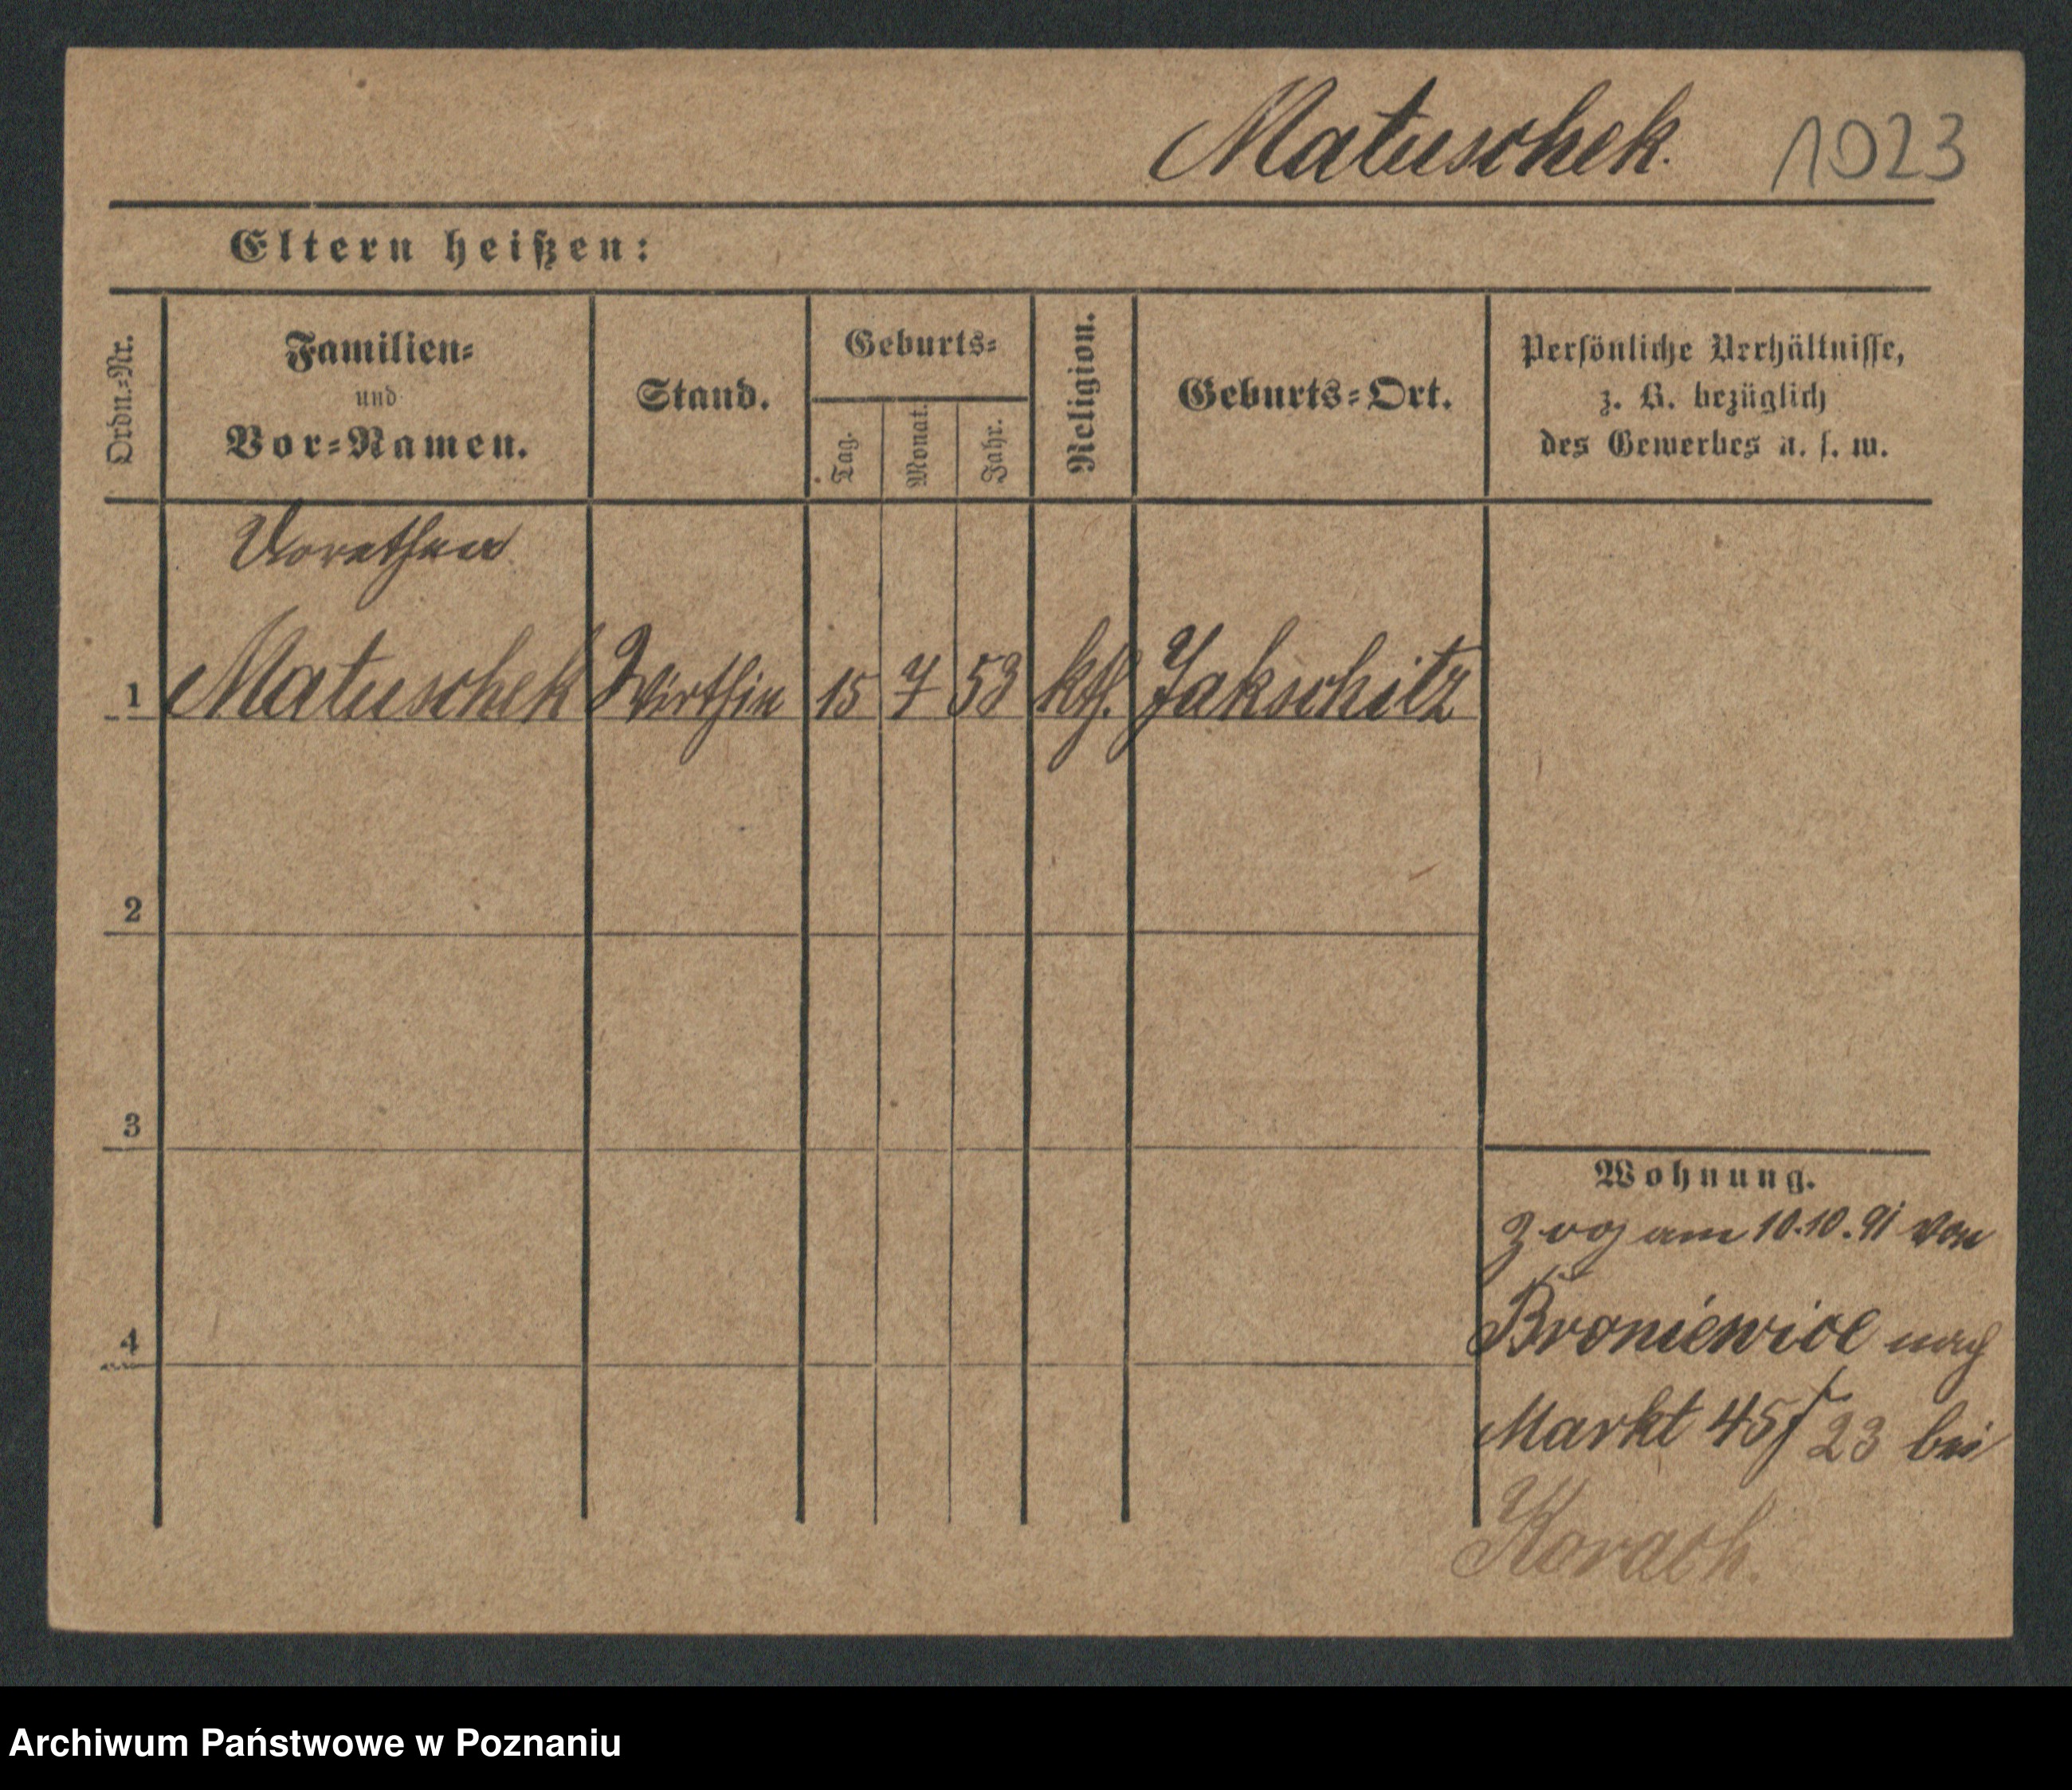 Matuschek. 1023
Eltern heißen:
Ordn.=Nr.
Familien=
und
Vor=Namen.
Stand.
Geburts=
Tag.
Monat.
Jahr.
Religion.
Geburts=Ort.
Persönliche Verhältnisse,
z. B. bezüglich
des Gewerbes u. s. w.
Dorothea
1 Matuschek Wirthin 15 7 53 kth. Jakschitz
2
3
4
Wohnung.
zog am 10.10.91 von
Broniewice nach
Markt 45/23 bei
Korach.
Archiwum Państwowe w Poznaniu